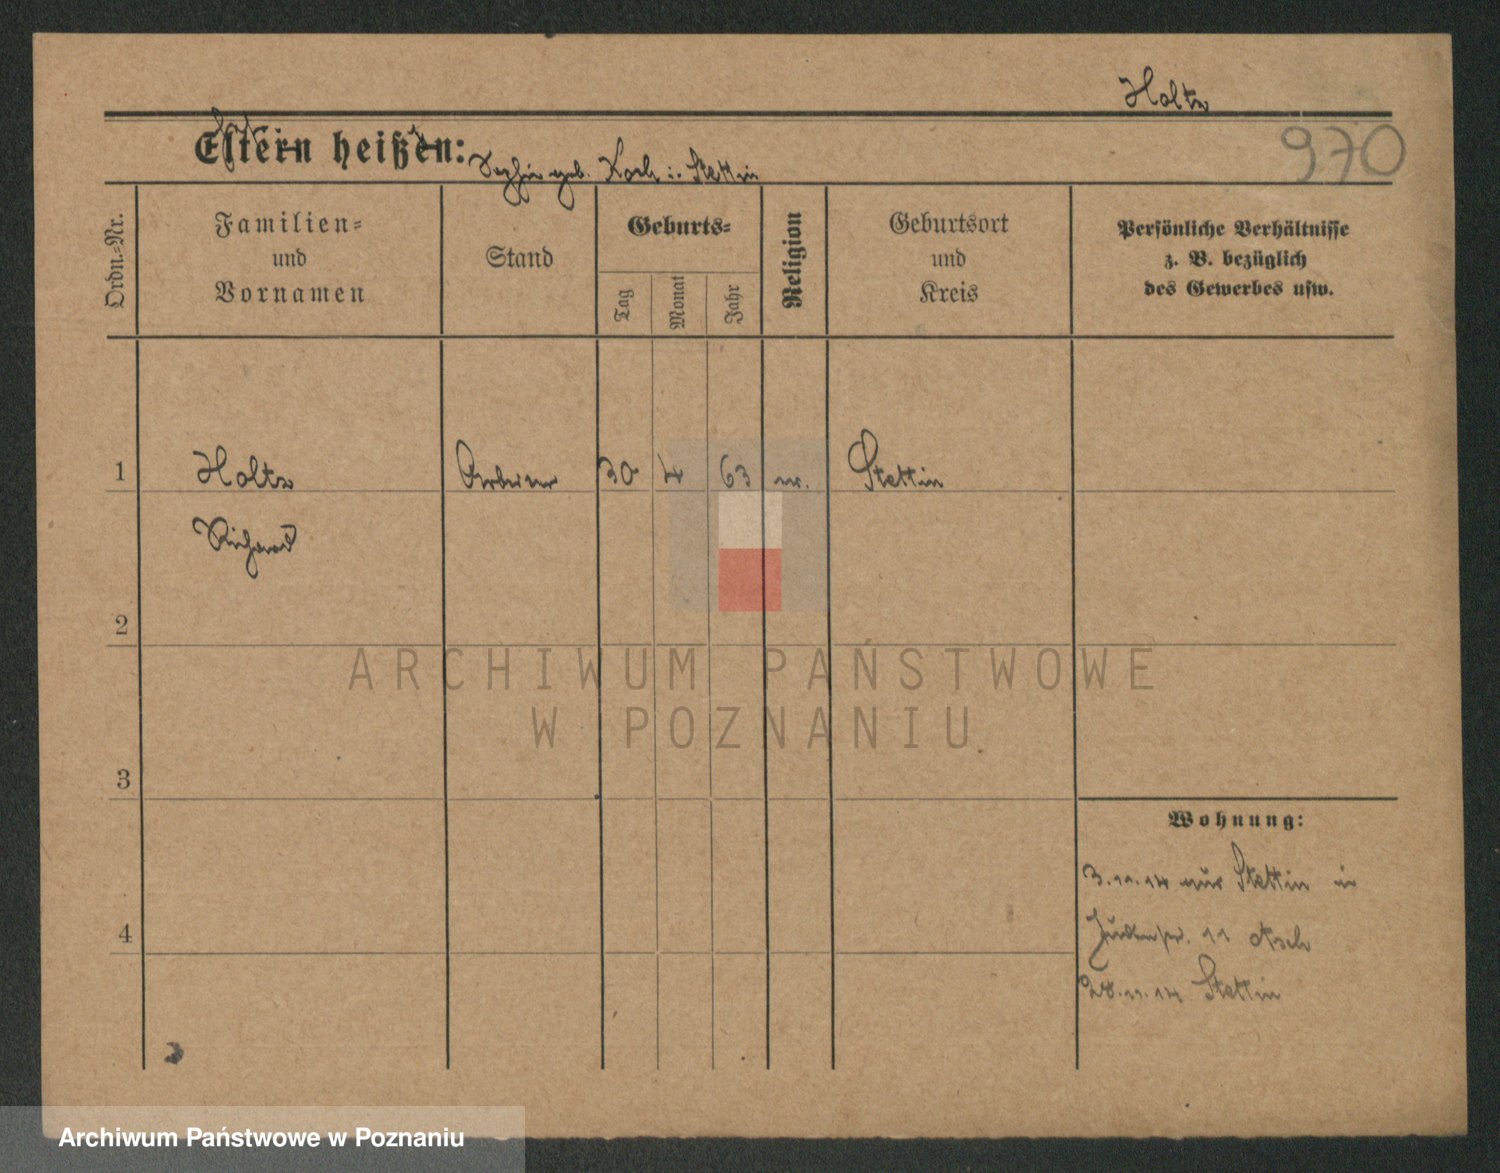 Holtz
970
Eltern heißen:
Sophie geb. Koch i. Stettin
Ordn.=Nr.
Familien=
und
Vornamen
Stand
Geburts=
Tag
Monat
Jahr
Religion
Geburtsort
und
Kreis
Persönliche Verhältnisse
z. B. bezüglich
des Gewerbes usw.
1 Holtz Arbeiter 30 4 63 Stettin
Richard
2
ARCHIWUM PAŃSTWOWE
W POZNANIU
3
Wohnung:
3.11.14 aus Stettin in
11 Asch
4
28.11.14 Stettin
Archiwum Państwowe w Poznaniu